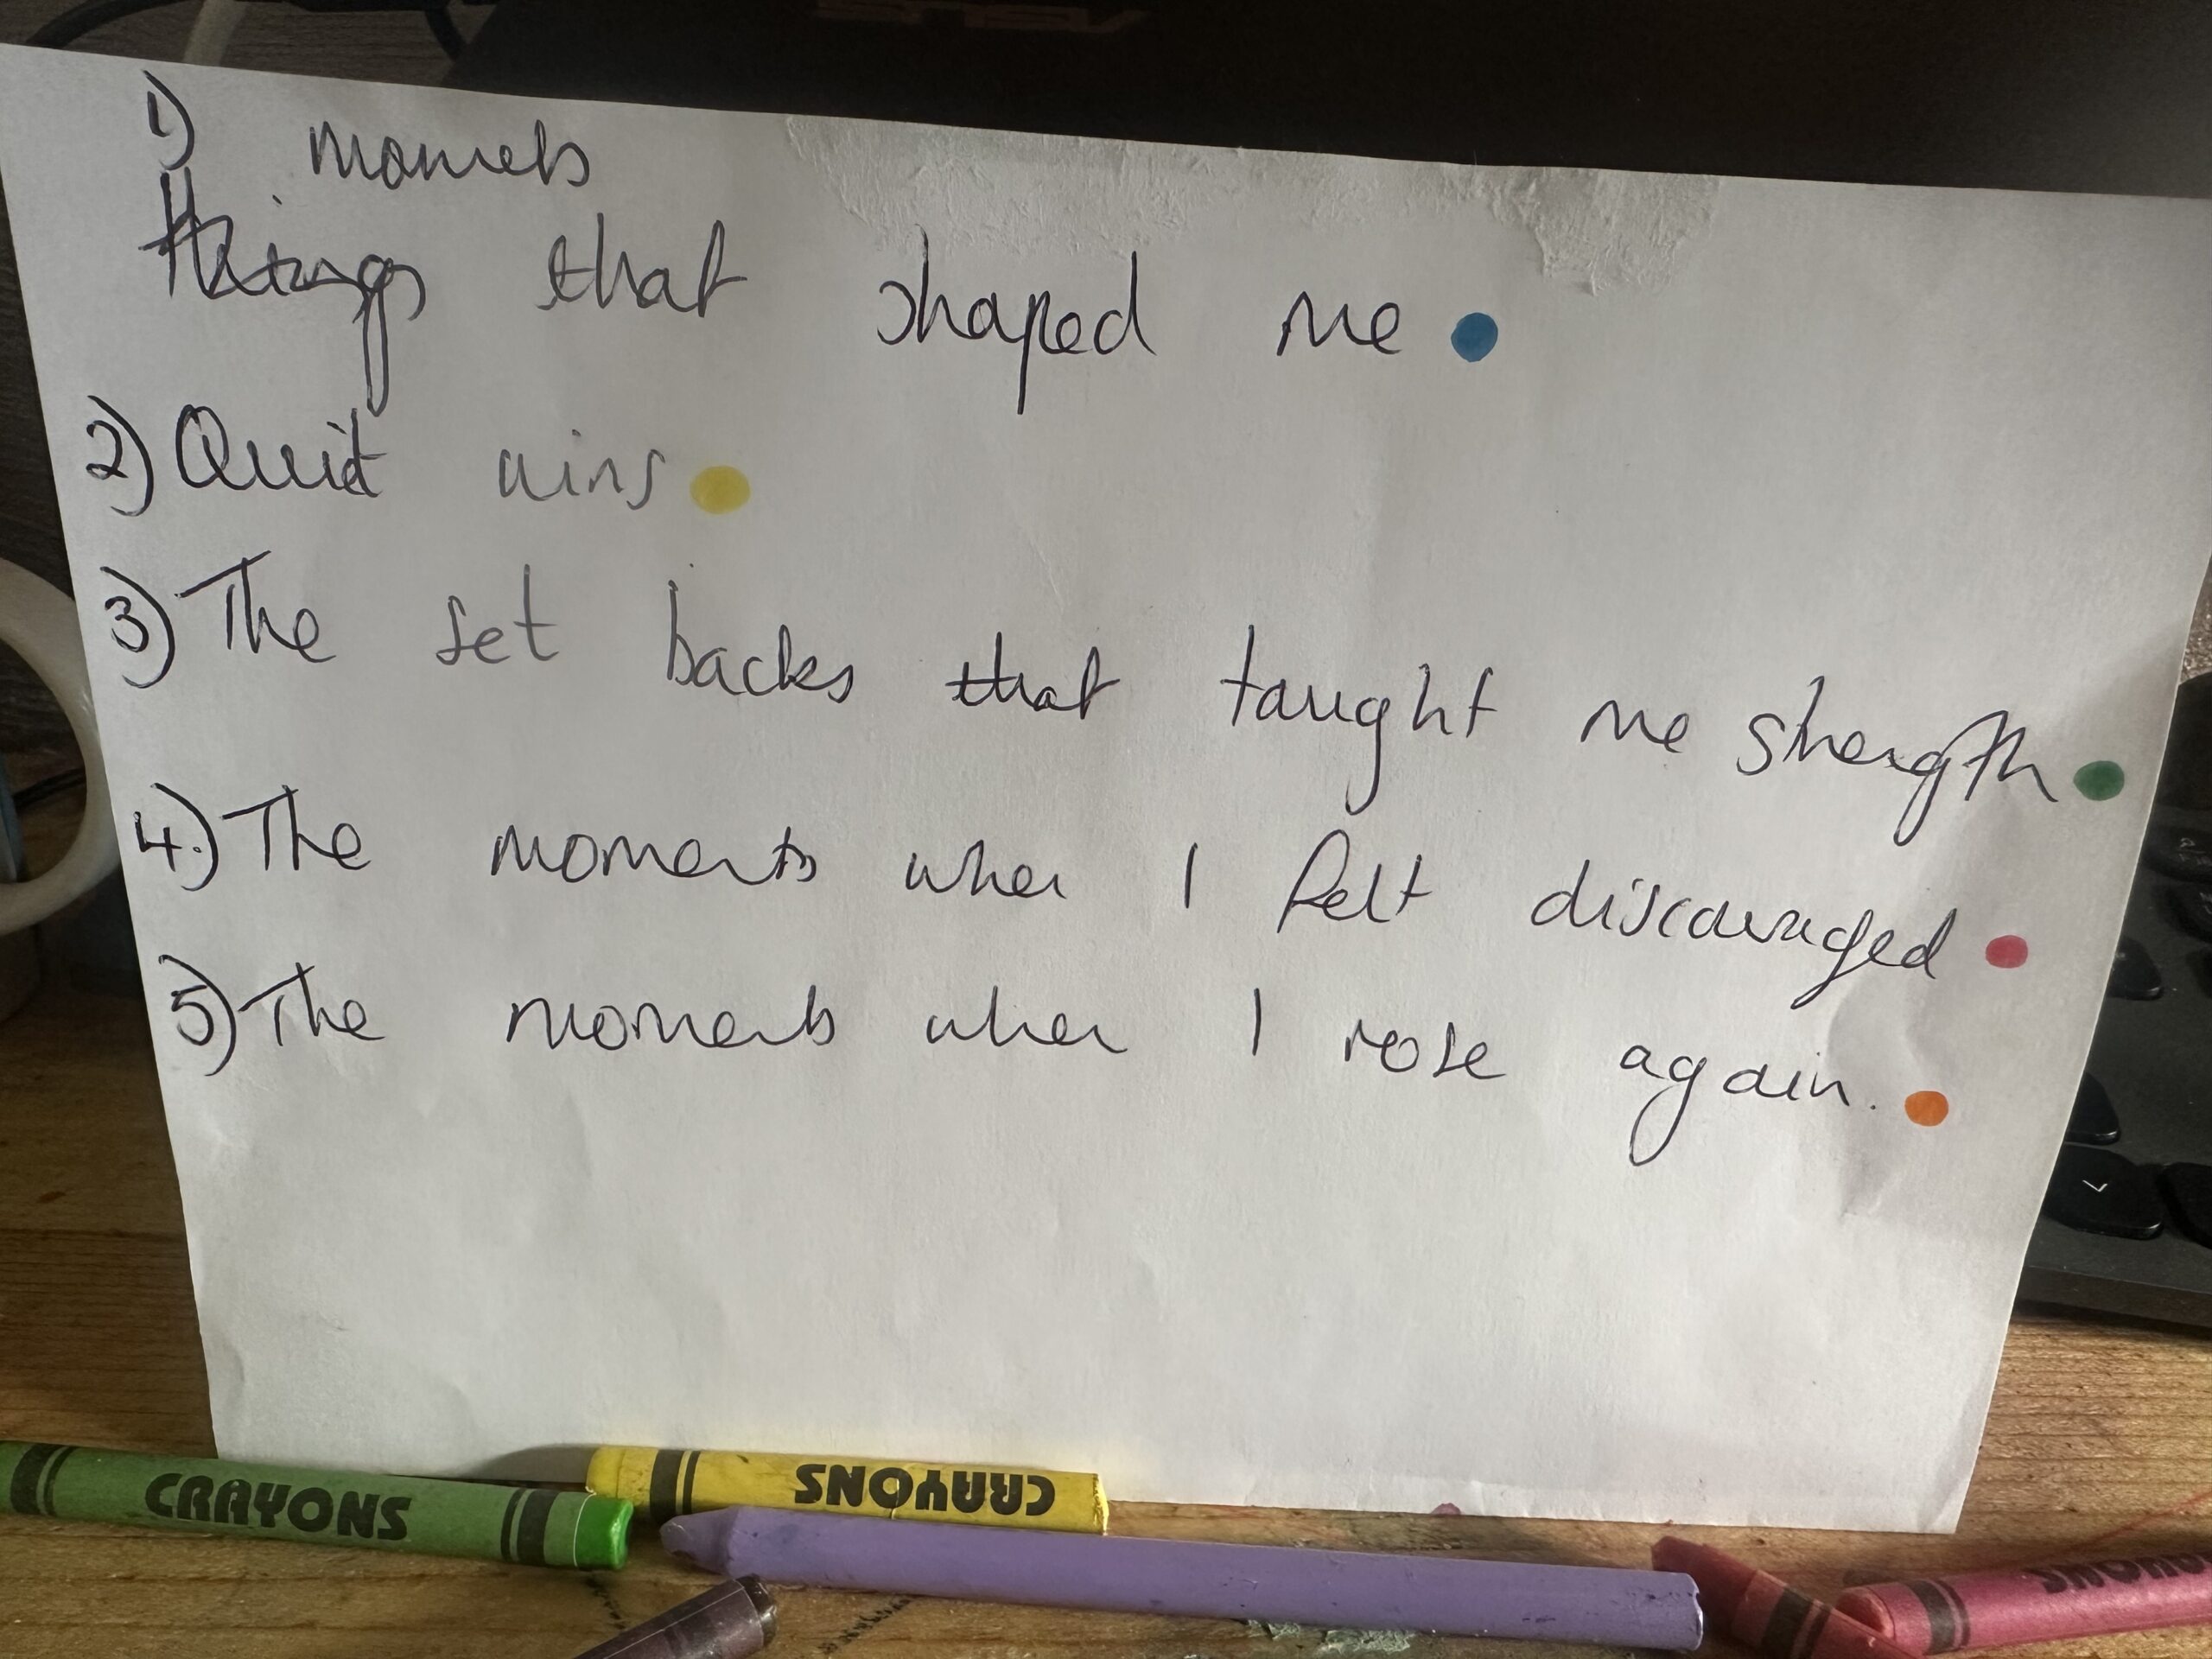 1) moments
things that shaped me
2) Quiet wins
3) The set backs that taught me strength
4.) The moments when I felt discouraged
5) The moments when I rose again.
CRAYONS
CRAYONS
CRAYONS